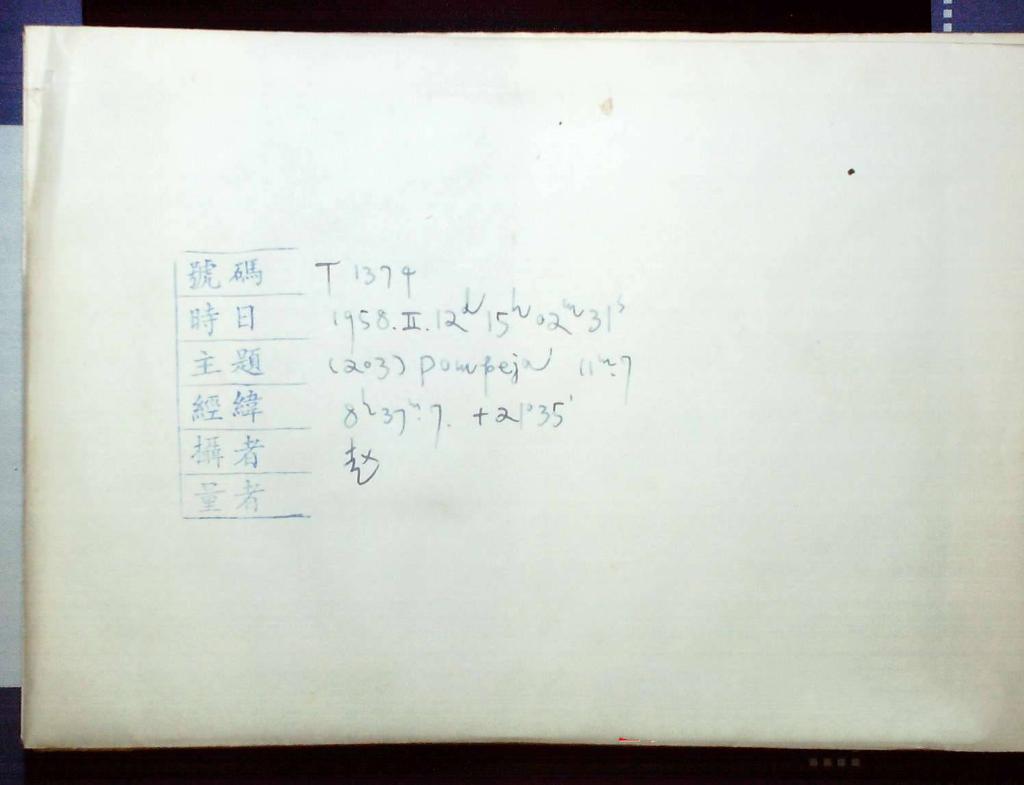 號碼 T 1374
時日 1958.II.12ᵈ 15ʰ 02ᵐ 31ˢ
主題 (203) Pompeja 11ᵐ.7
經緯 8ʰ37ᵐ.7. +21°35'
攝者 赵
量者